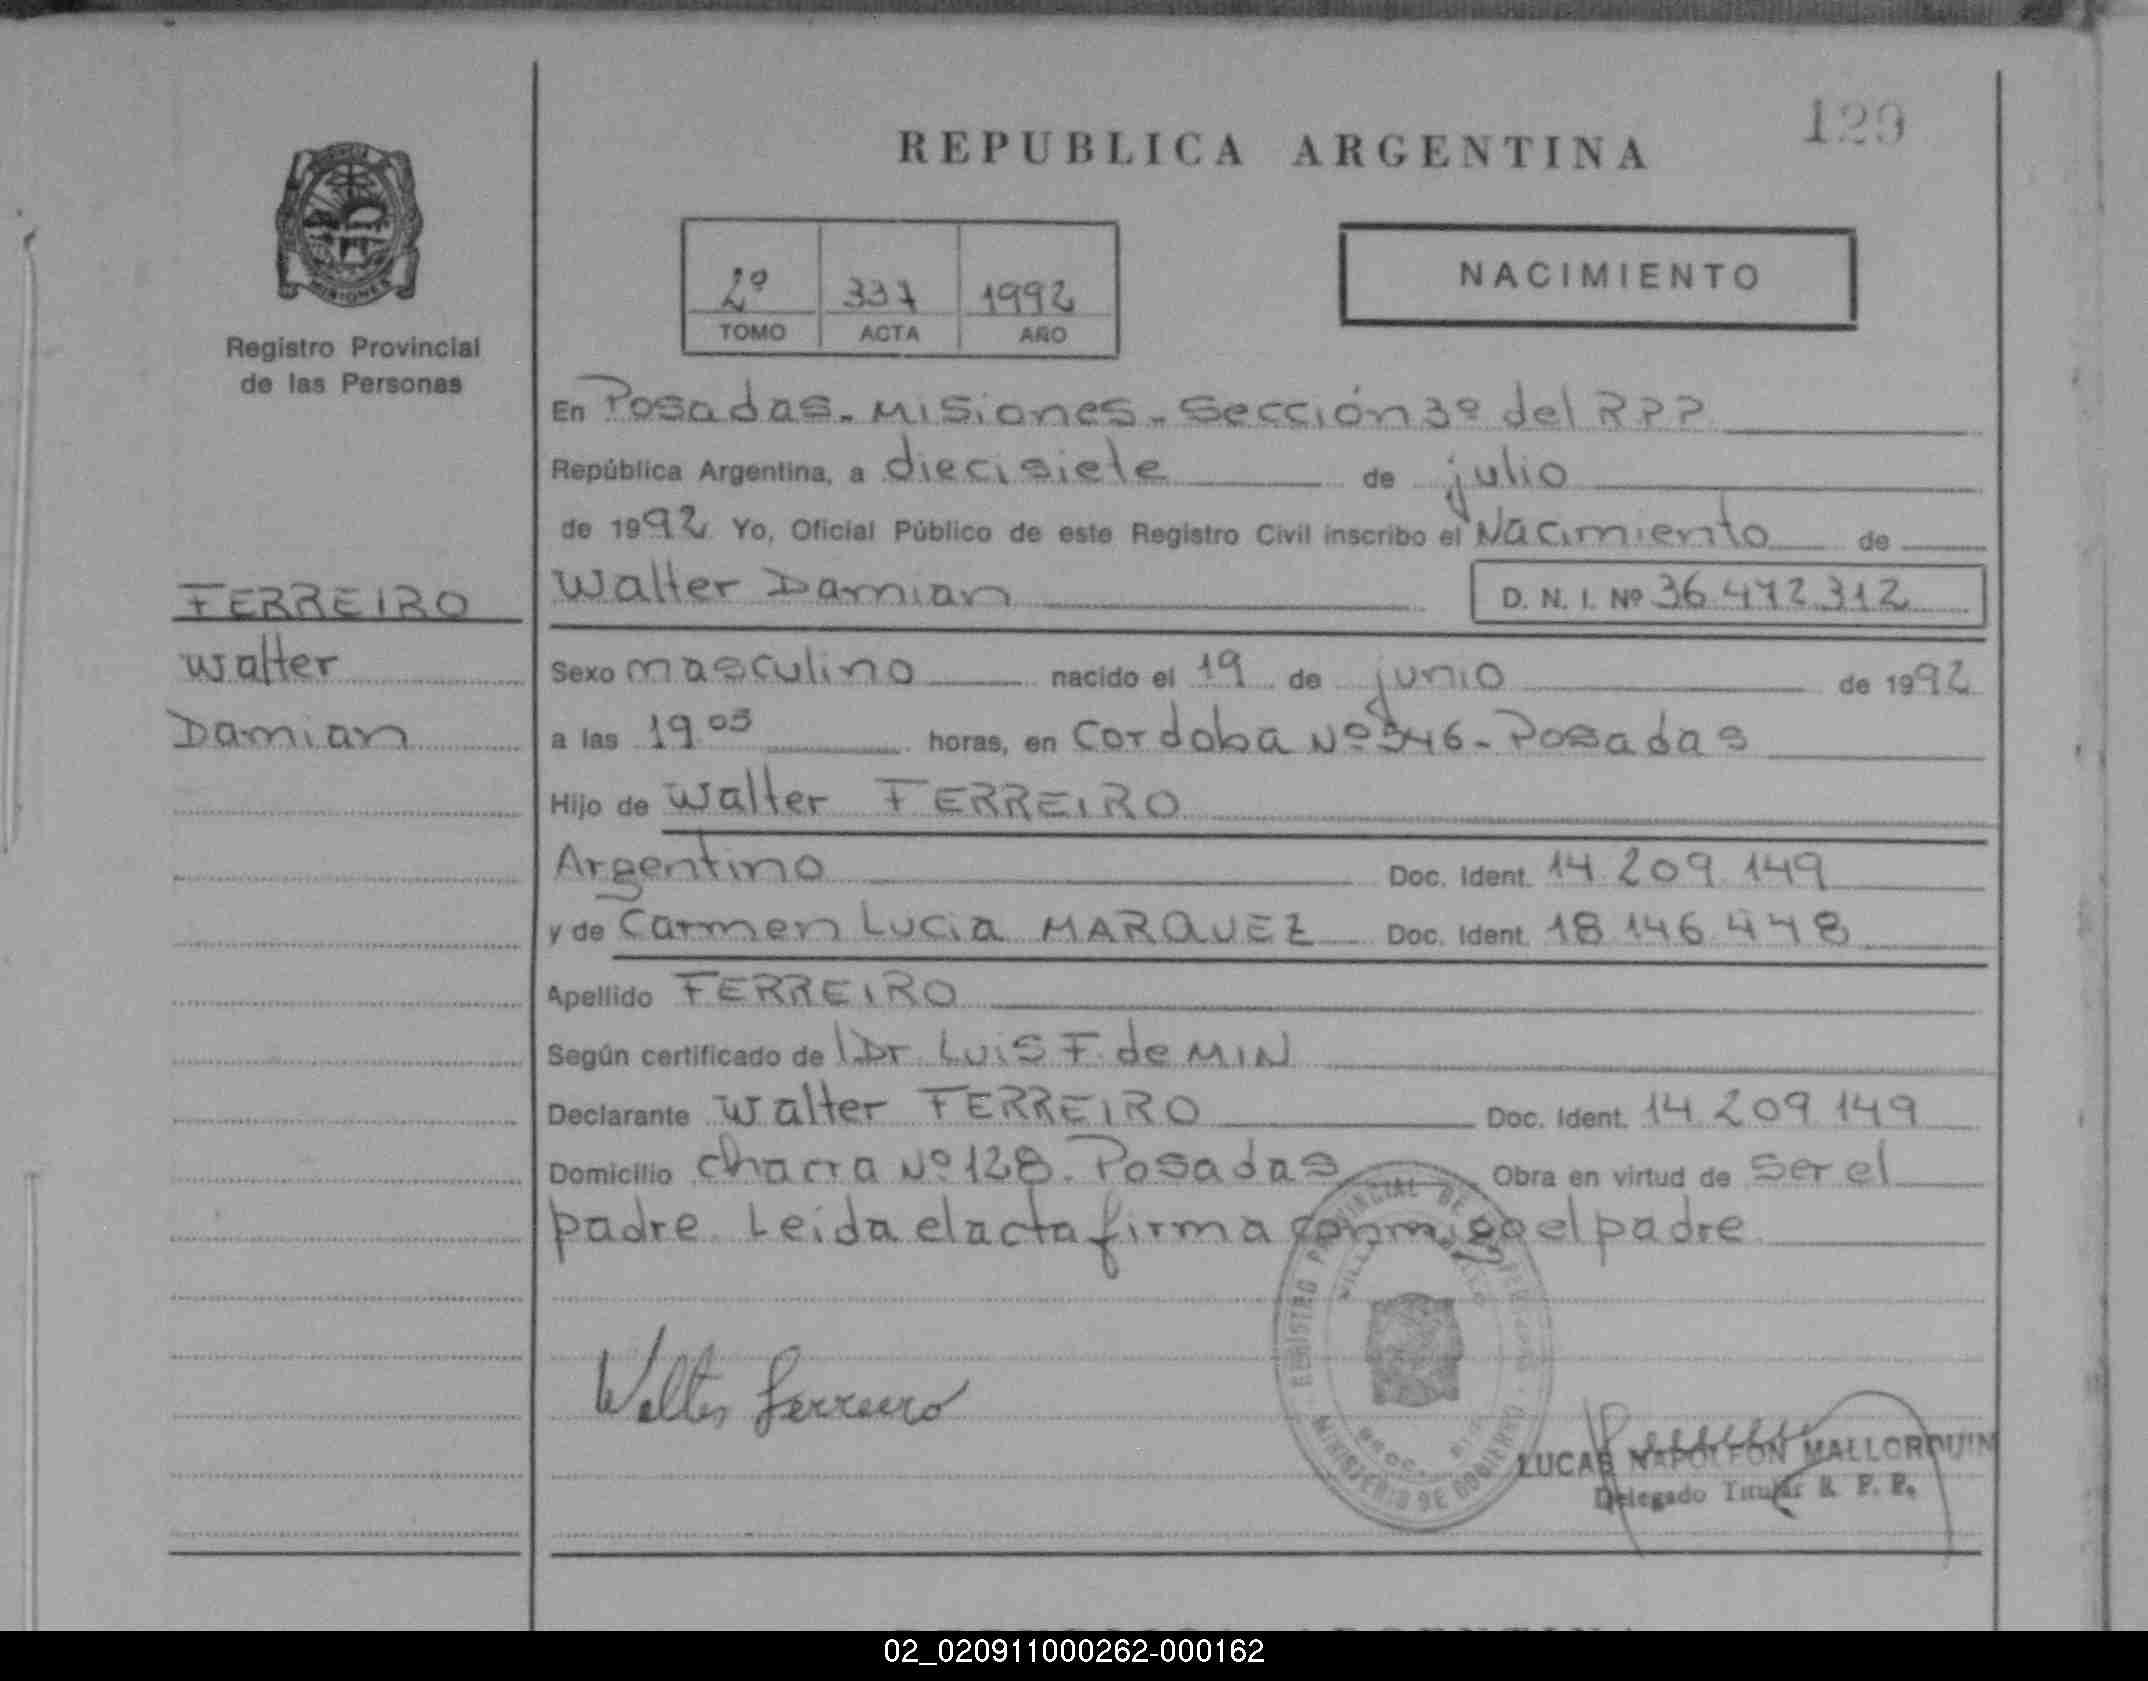 129
REPUBLICA ARGENTINA
MISIONES
Registro Provincial
de las Personas
2º 337 1992
TOMO ACTA AÑO
NACIMIENTO
En Posadas - Misiones - Sección 3º del RPP
República Argentina, a diecisiete de julio
de 1992 Yo, Oficial Público de este Registro Civil inscribo el Nacimiento de
FERREIRO
Walter
Damian
Walter Damian D. N. I. Nº 36.472.312
Sexo masculino nacido el 19 de junio de 1992
a las 19.05 horas, en Cordoba Nº 346 - Posadas
Hijo de Walter FERREIRO
Argentino Doc. Ident. 14.209.149
y de Carmen Lucia MARQUEZ Doc. Ident. 18.146.448
Apellido FERREIRO
Según certificado de Dr. Luis F. de MIN
Declarante Walter FERREIRO Doc. Ident. 14.209.149
Domicilio chacra Nº 128. Posadas Obra en virtud de ser el
padre. Leida el acta firma conmigo el padre
REGISTRO PROVINCIAL DE
MINISTERIO DE GOBIERNO
Walter Ferreiro
LUCAS NAPOLEON MALLORQUIN
Delegado Titular R. P. P.
02_020911000262-000162